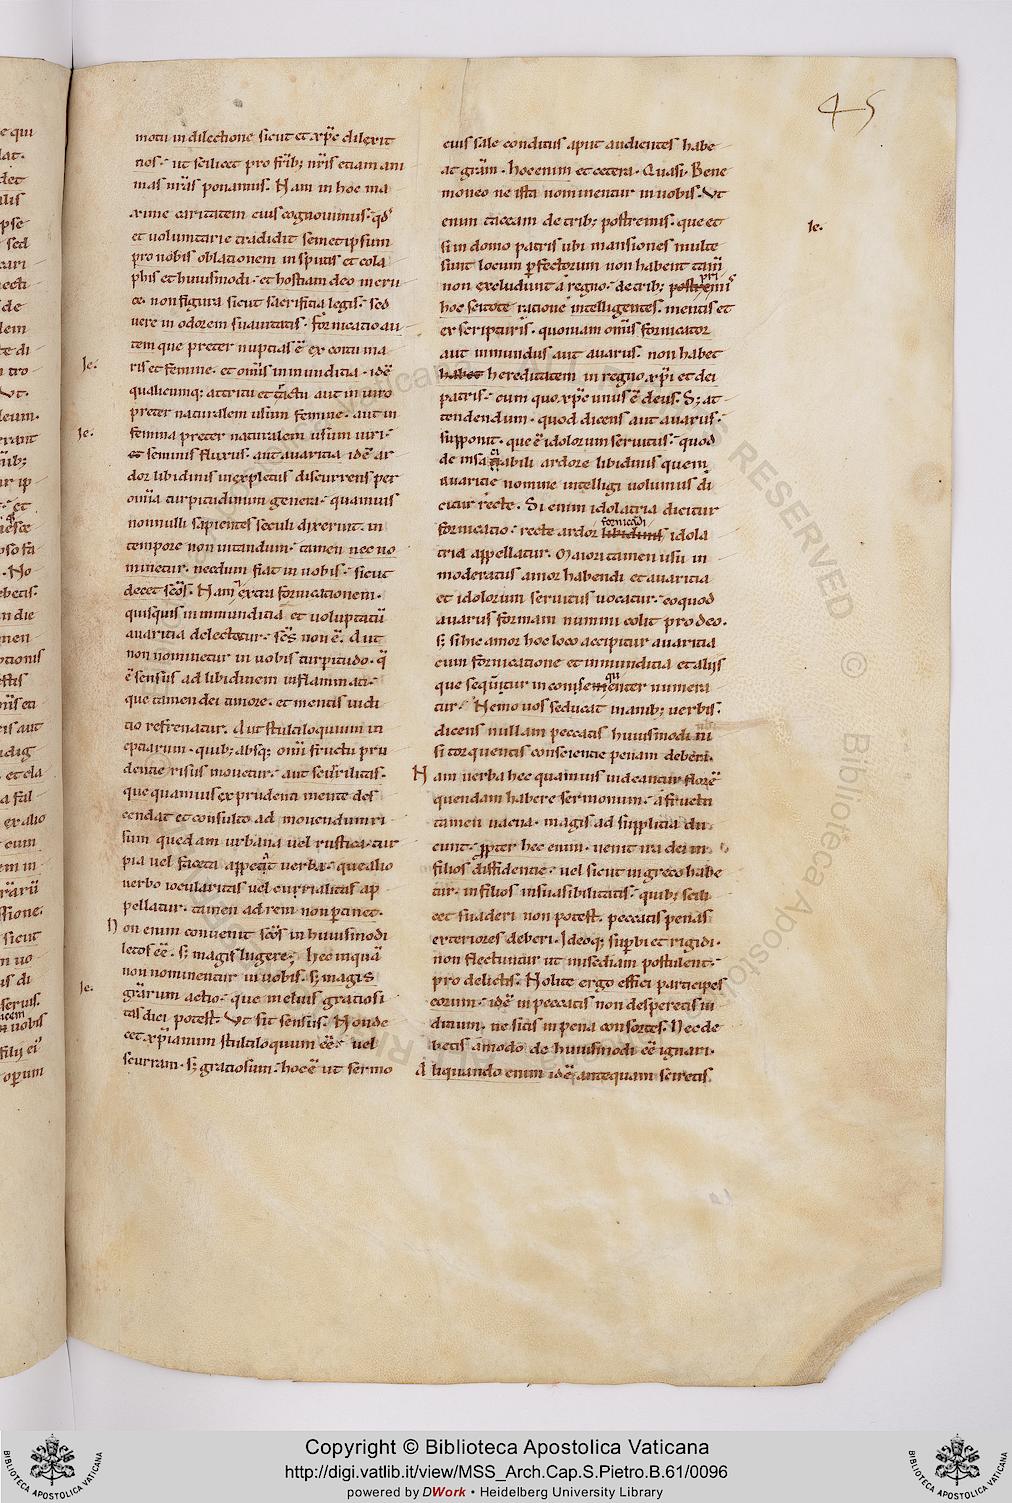 45
motu in dilectione sicut et xpc̄ dilexit
nos· ut scilicet pro fr̄ib; nr̄is etiam ani
mas nr̄as ponamus. Nam in hoc ma
xime caritatem eius cognouimus· qd̕
et uoluntarie tradidit semetipsum
pro nobis oblationem in sputis et cola
phis et huiusmodi· et hostiam deo meru
non figura sicut sacrifitia legis· sed
uere in odorem suauitatis· fornicatio au
tem que preter nuptias ē ex coitu ma
ris et femine· et om̄is inmunditia· idē
qualicumq; attritu et tactu aut in uiro
preter naturalem usum femine· aut in
femina preter naturalem usum uiri·
et seminis fluxus· aut auaritia idē ar
dor libidinis inexpletus discurrens per
om̄ia turpitudinum genera· quamuis
nonnulli sapientes seculi dixerint· in
tempore non uitandum· tamen nec no
minetur· necdum fiat in uobis· sicut
decet sc̄os· Nam extra fornicationem·
quisquis inmunditia et uoluptatū
auaritia delectatur· sc̄s non ē· Aut
non nominetur in uobis turpitudo· q̄
ē sensus ad libidinem inflammati·
que tamen dei timore· et mentis iudi
tio refrenatur· Aut stultiloquium in
eptiarum· quib; absq; om̄i fructu pru
dentie risus mouetur· aut scurrilitas·
que quamuis ex prudenti mente des
cendat et consulto ad mouendum ri
sum quedam urbana uel rustica· tur
pia uel faceta appetit uerba· que alio
uerbo iocularitas uel currialitas ap
pellatur· tamen ad rem non ptinet·
Non enim conuenit sc̄os in huiusmodi
letos ēē· s; magis lugere; hec inquā
non nominentur in uobis· s; magis
gr̄arum actio· que melius gratiosi
tas dici potest· Vt sit sensus· Non de
cet xp̄ianum stultiloquum ēē· uel
scurram· s; gratiosum· hoc ē ut sermo
eius sale conditus aput audientes habe
at gr̄am· hoc enim et cetera· Quasi· Bene
moneo ne ista nominentur in uobis· Vt
enim taceam de trib; postremis· que et
si in domo patris ubi mansiones multe
sunt locum pfectorum non habent tam̄
non excludunt a regno· de trib; postremis
hoc scitote ratione intelligentes· mentis et
ex scripturis· quoniam om̄is fornicator
aut inmundus aut auarus· non habet
habet hereditatem in regno xp̄i et dei
patris· cum quo xpc̄ unus ē deus· S; at
tendendum· quod dicens aut auarus·
supponit· que ē idolorum seruitus· quod
de insatiabili ardore libidinis quem
auaritie nomine intelligi uolumus di
citur recte· Si enim idolatria dicitur
fornicandi
fornicatio· recte ardor libidinis idola
tria appellatur· Maiori tamen usu in
moderatus amor habendi et auaritia
et idolorum seruitus uocatur· eo quod
auarus formam nummi colit pro deo·
s; si hic amor hoc loco accipitur auaritia
cum fornicatione et inmunditia et aliis
numera
tur· Nemo uos seducat inanib; uerbis·
dicens nullam peccatis huiusmodi ni
si torquentis conscientie penam deberi·
Nam uerba hec quamuis uideantur florē
quendam habere sermonum· a fructu
tamen uacua· magis ad supplitia du
cunt· ppter hec enim· uenit ira dei in
filios diffidentie· uel sicut in greco habe
tur· in filios insuasibilitatis· quib; scili
cet suaderi non potest· peccatis penas
exteriores deberi· Ideoq; supbi et rigidi·
non flectuntur ut misc̄diam postulent·
pro delictis· Nolite ergo effici participes
eorum· idē in peccatis non desperetis iu
dicium· ne sitis in pena consortes· Nec de
betis amodo de huiusmodi ēē ignari·
Aliquando enim idē antequam sciretis
Ie·
Ie·
Ie·
Ie·
Copyright © Biblioteca Apostolica Vaticana
http://digi.vatlib.it/view/MSS_Arch.Cap.S.Pietro.B.61/0096
powered by DWork • Heidelberg University Library
BIBLIOTECA APOSTOLICA VATICANA
BIBLIOTECA APOSTOLICA VATICANA